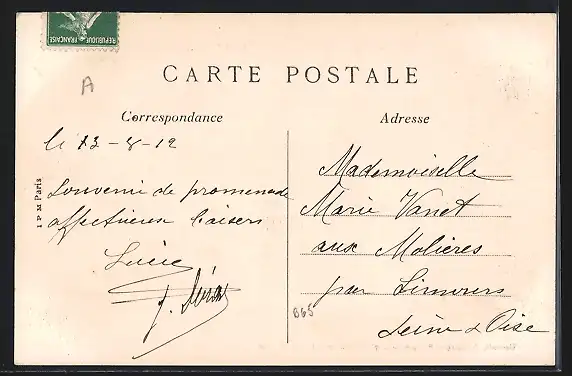 REPUBLIQUE FRANÇAISE
A
CARTE POSTALE
Correspondance
Adresse
le 13-8-12
Souvenir de promenade
affectueux baisers
Lucie
I P M Paris
Mademoiselle
Marie Vanet
aux Molières
par Limours
Seine & Oise
865